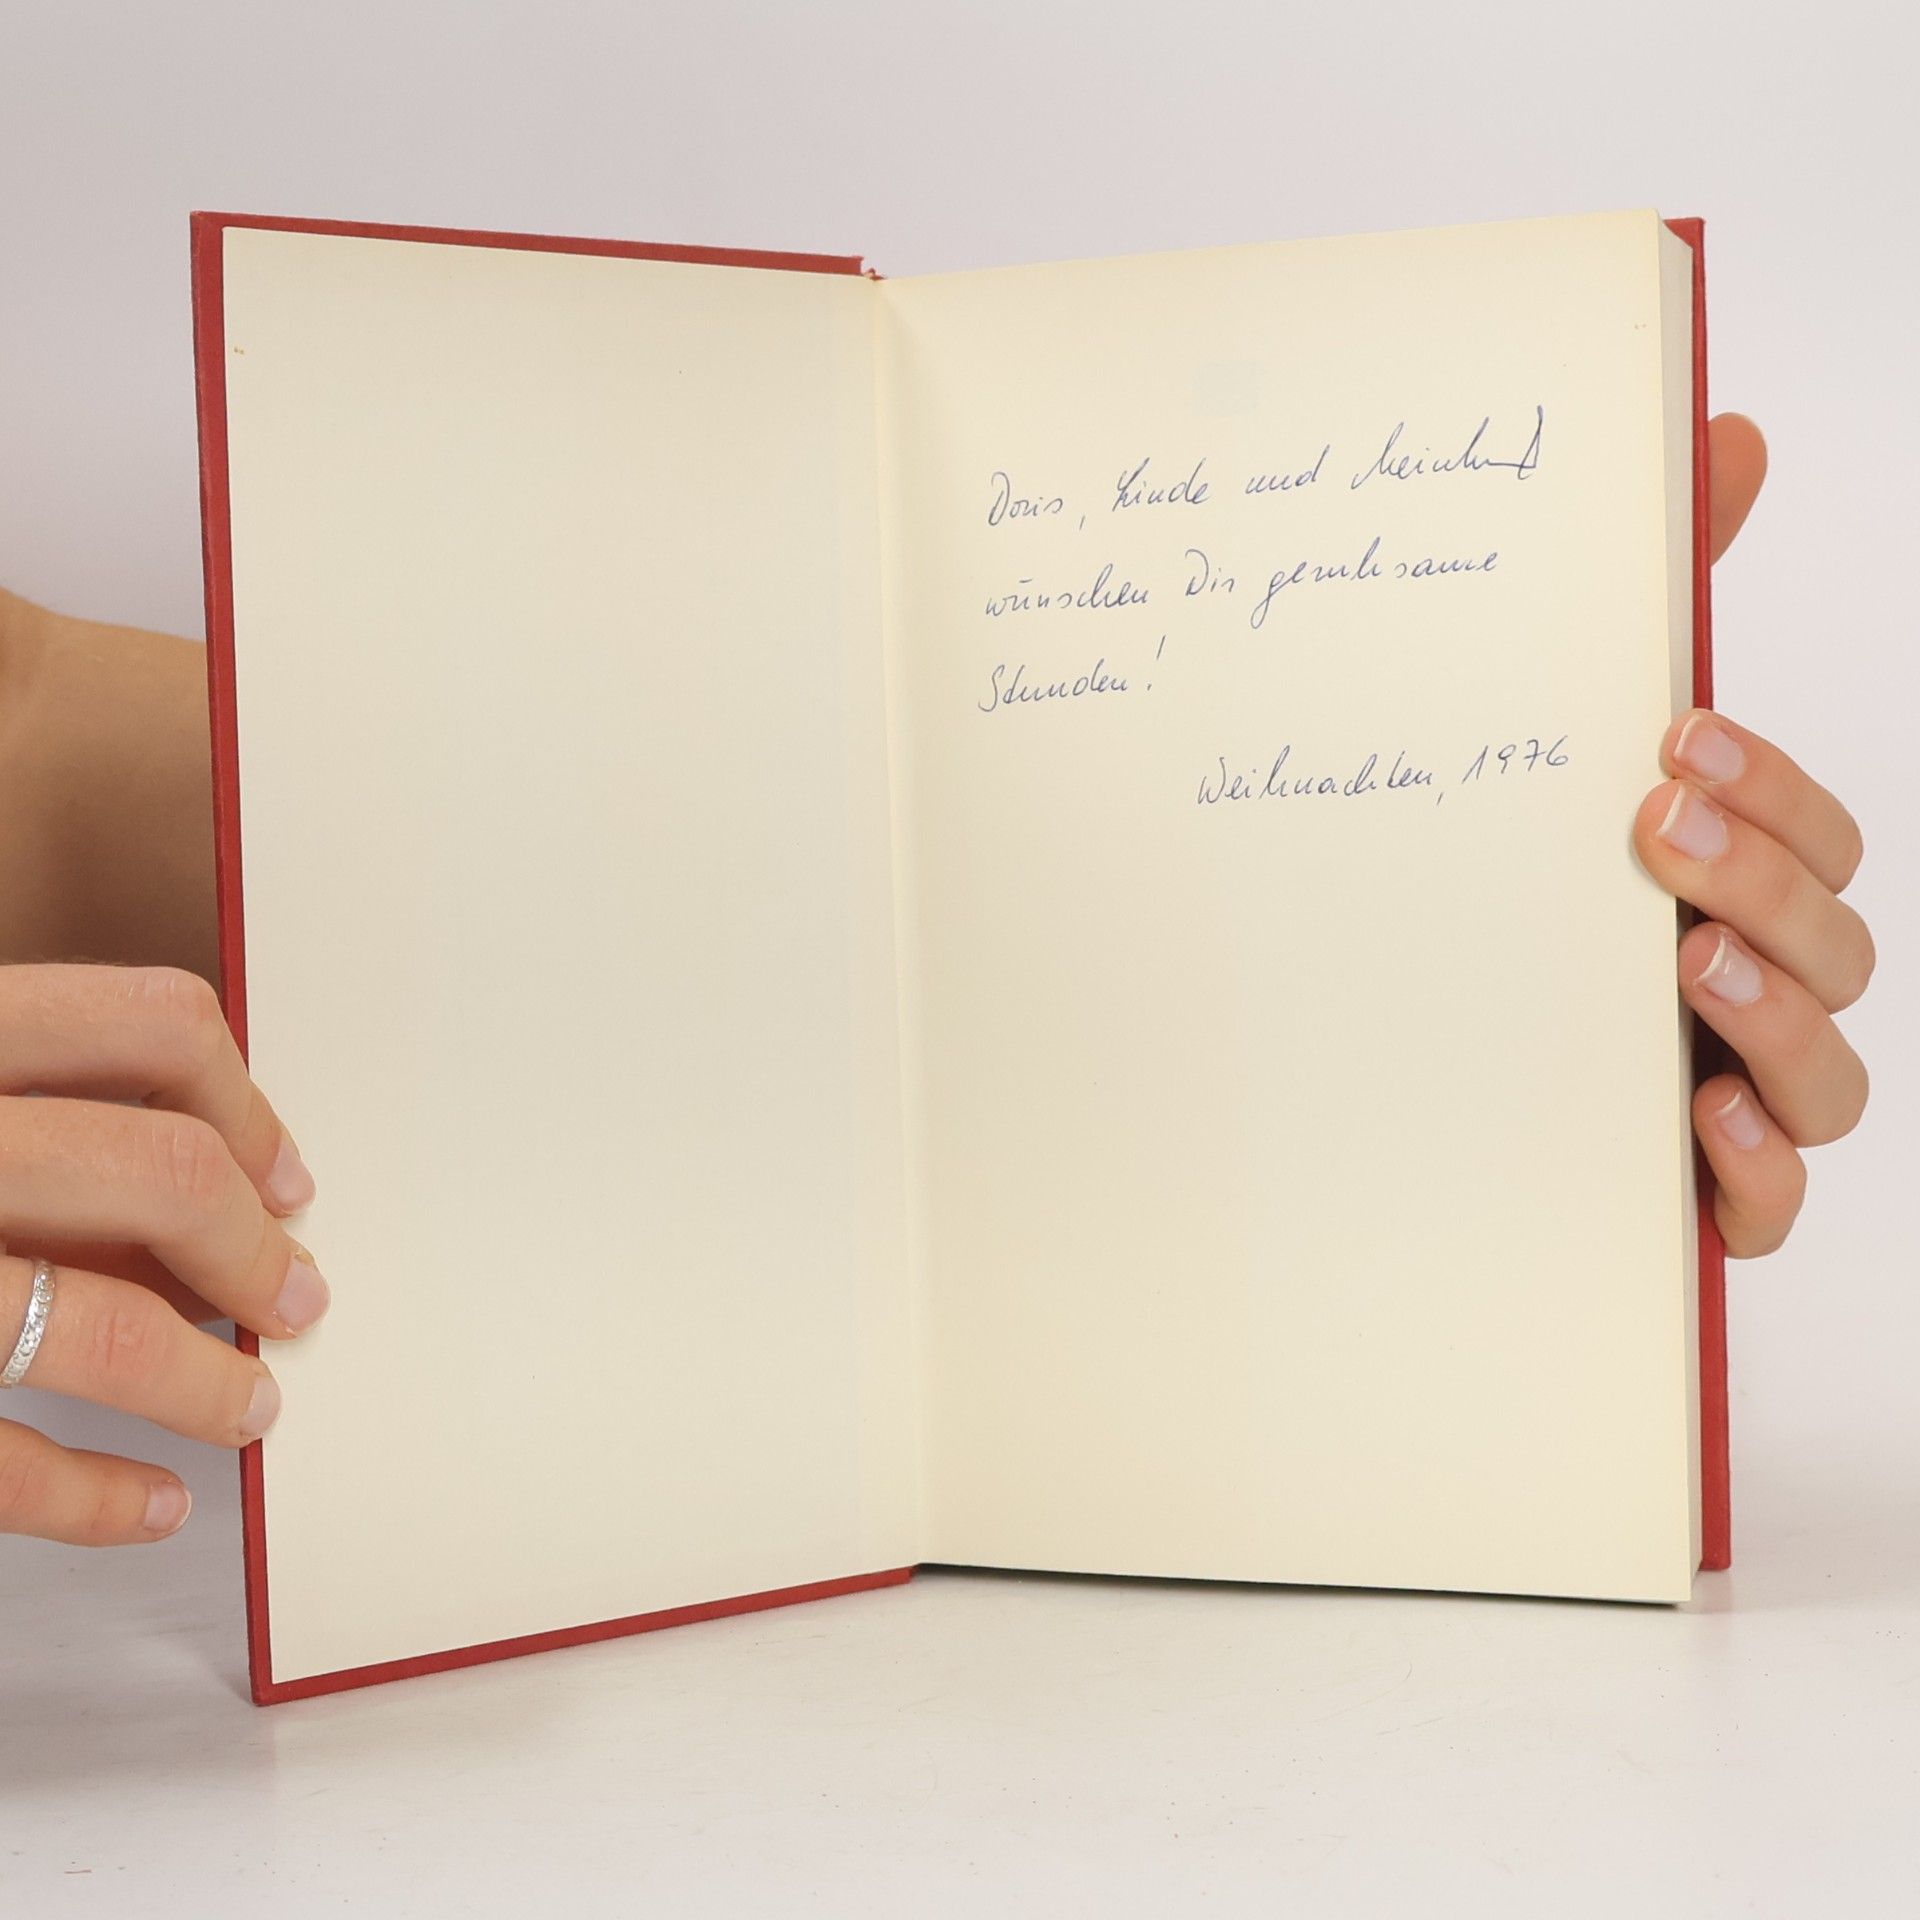 Doris, Linde und Meinhard
wünschen Dir geruhsame
Stunden!
Weihnachten, 1976